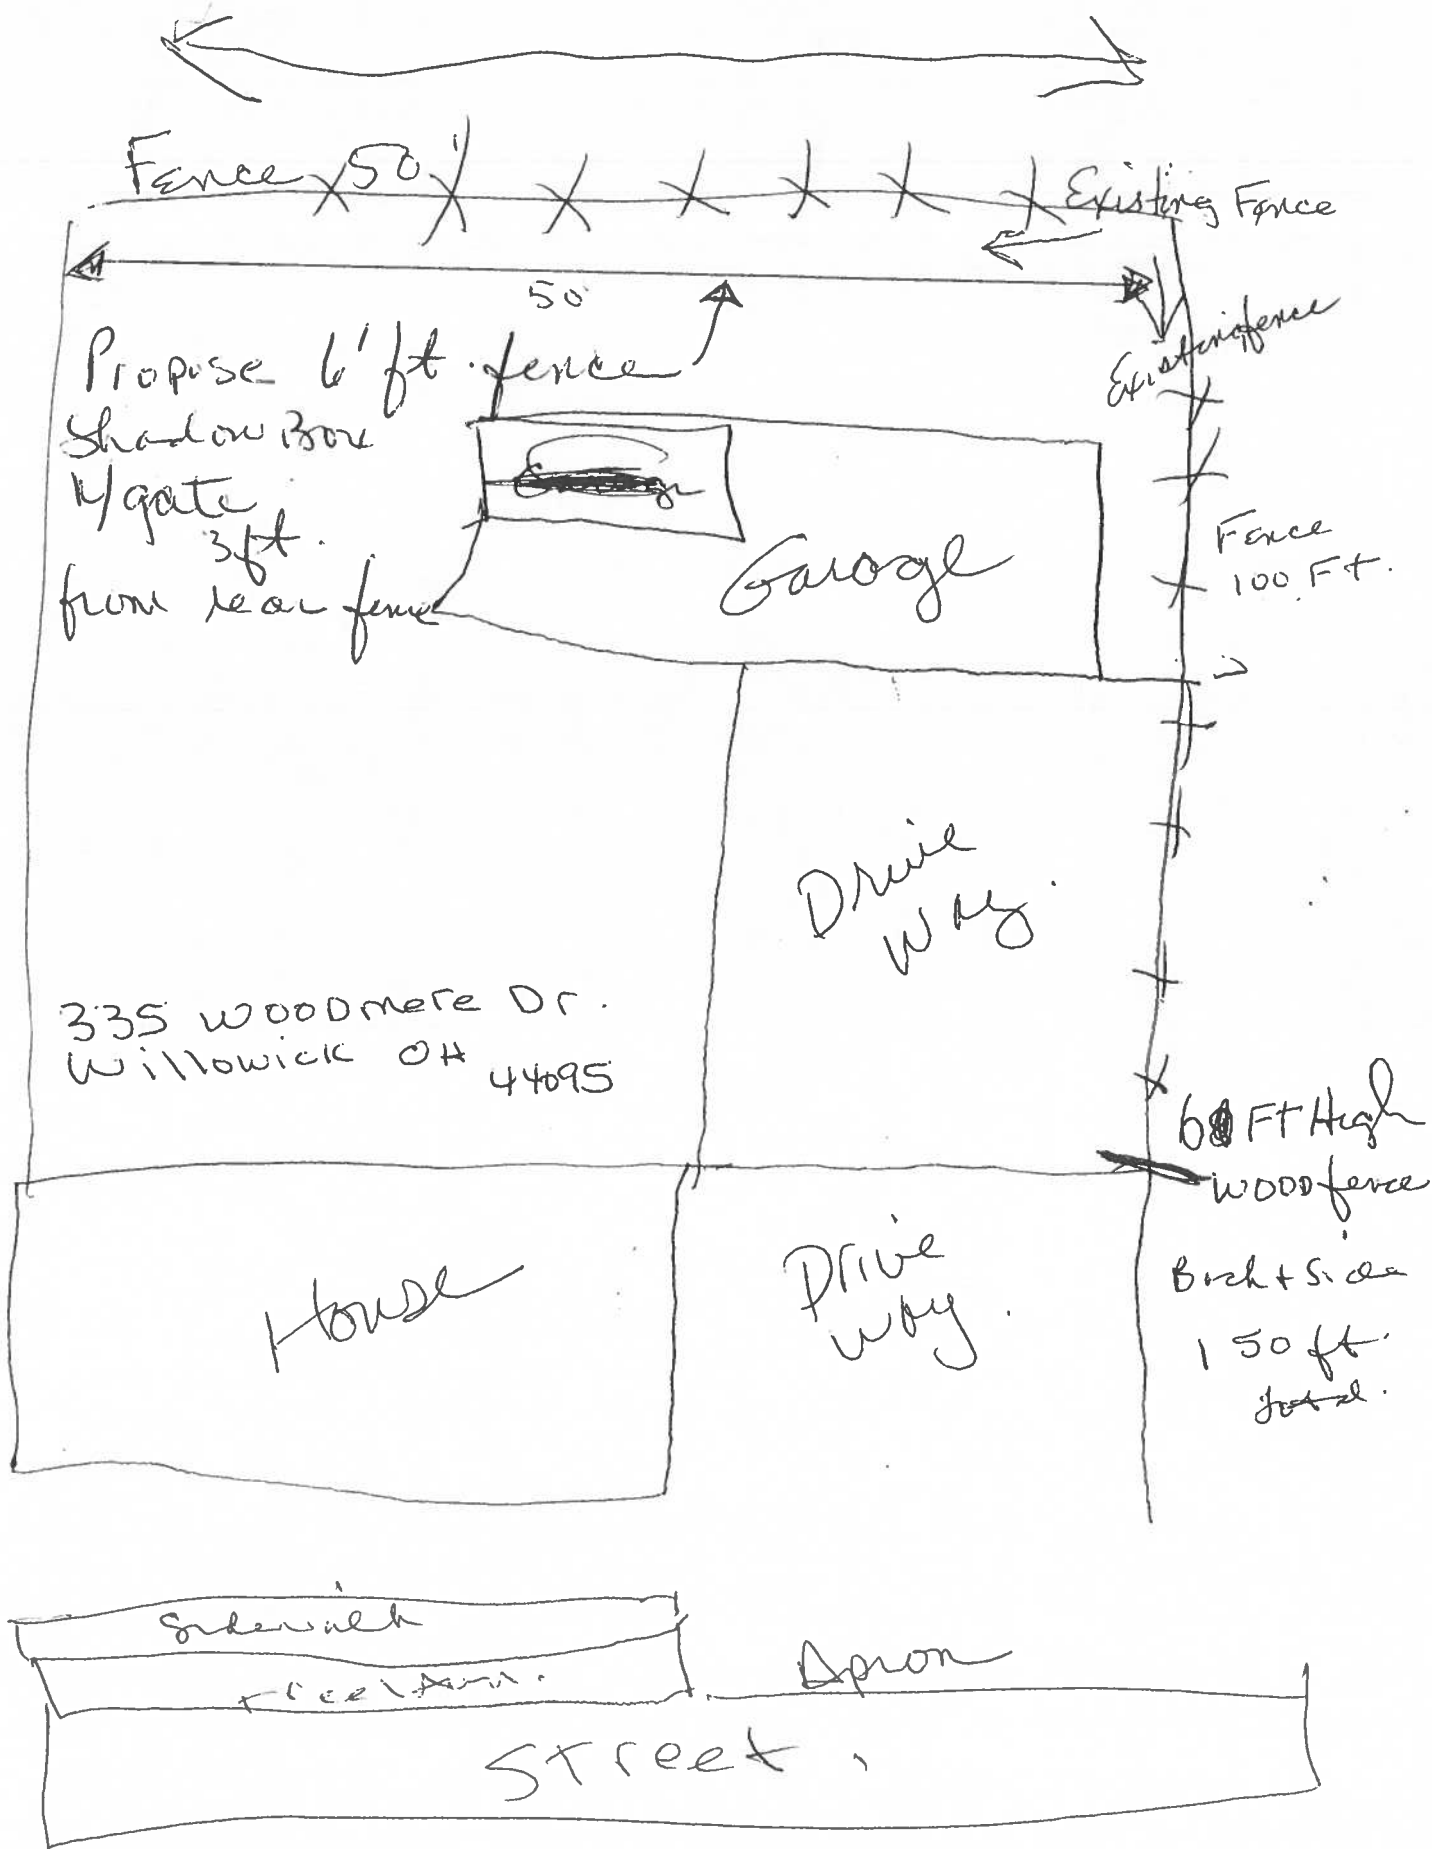 Fence 50'
Existing Fence
50
Existing fence
Propose 6' ft. fence
Shadow Box
w/gate
3ft.
from rear fence
Garage
Fence
100 Ft.
Drive
Way.
335 WOODmere Dr.
Willowick OH
44095
6 Ft High
WOOD fence
Back + Side
150 ft.
total.
House
Drive
Way.
Sidewalk
Treelawn.
Apron
Street.